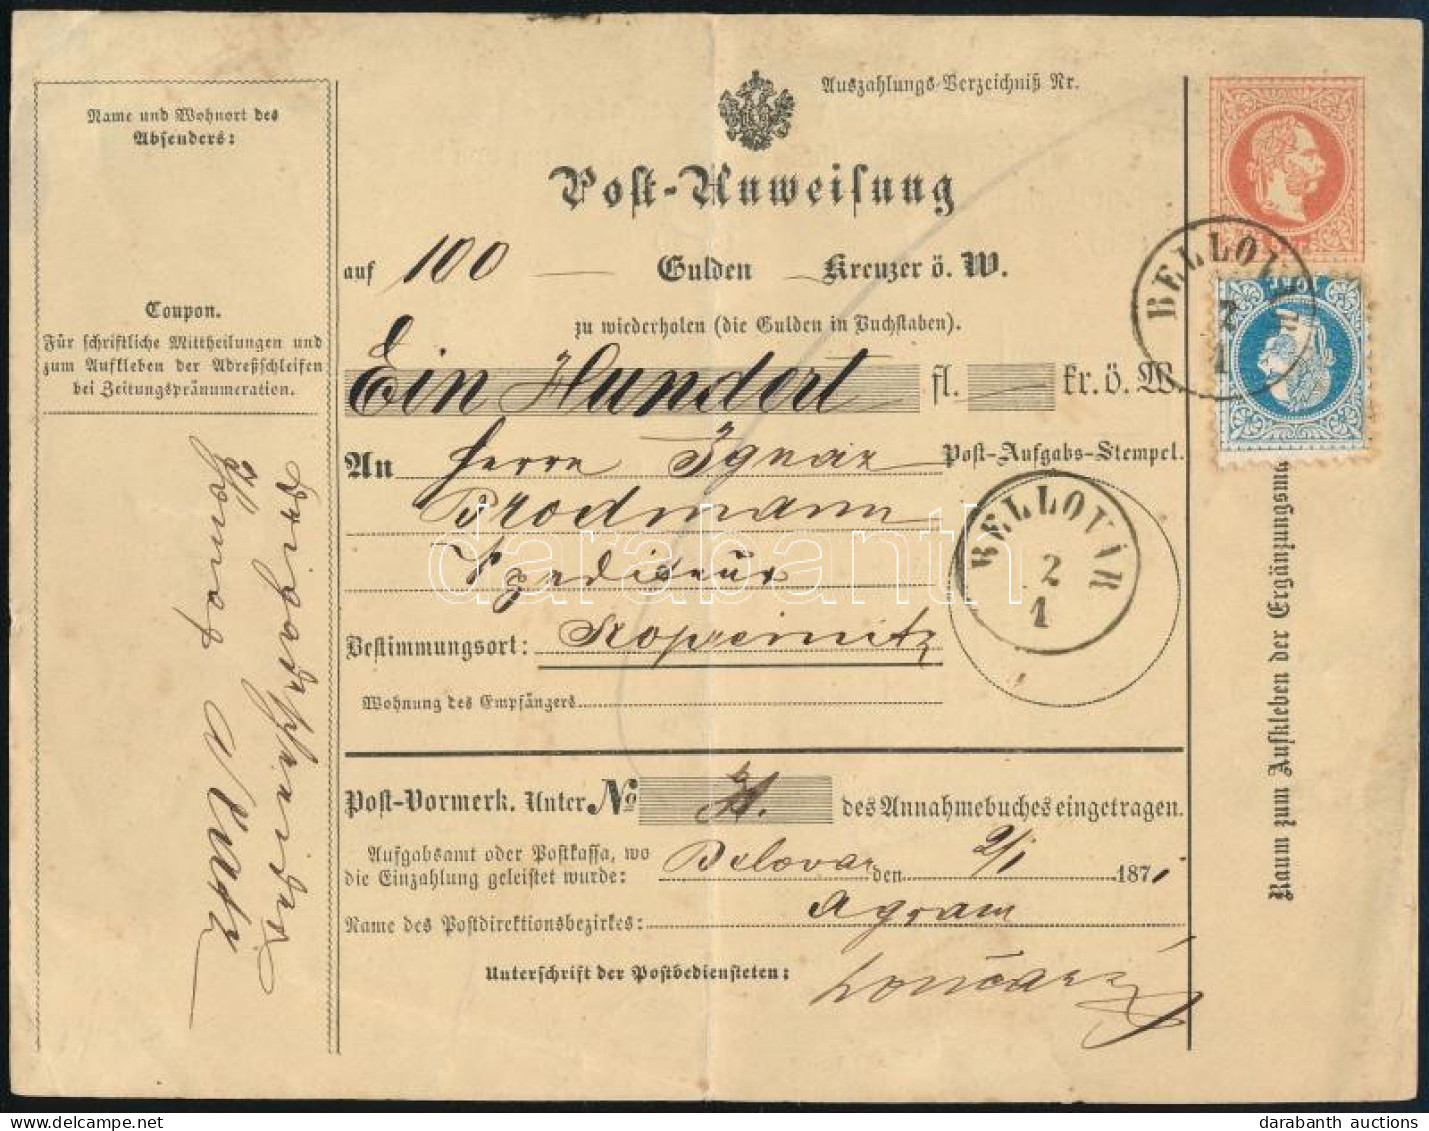 Name und Wohnort des
Absenders:
Coupon.
Für schriftliche Mittheilungen und
zum Aufkleben der Adreßschleifen
bei Zeitungspränumeration.
Auszahlungs-Verzeichniß Nr.
Post-Anweisung
auf 100 — Gulden — Kreuzer ö. W.
zu wiederholen (die Gulden in Buchstaben).
Ein Hundert fl. — kr. ö. W.
An Herrn Ignaz
Post-Aufgabs-Stempel.
Brodmann
Spediteur
Bestimmungsort: Kopreinitz
Wohnung des Empfängers
BELLOVÁR
2
1
BELLOV
2
1
Post-Vormerk. Unter No des Annahmebuches eingetragen.
Aufgabsamt oder Postkassa, wo
die Einzahlung geleistet wurde: Belovar den 2/1 1871
Name des Postdirektionsbezirkes: Agram
Unterschrift der Postbediensteten:
Raum zum Aufkleben der Ergänzungsm
darabanth
darabanth auctions